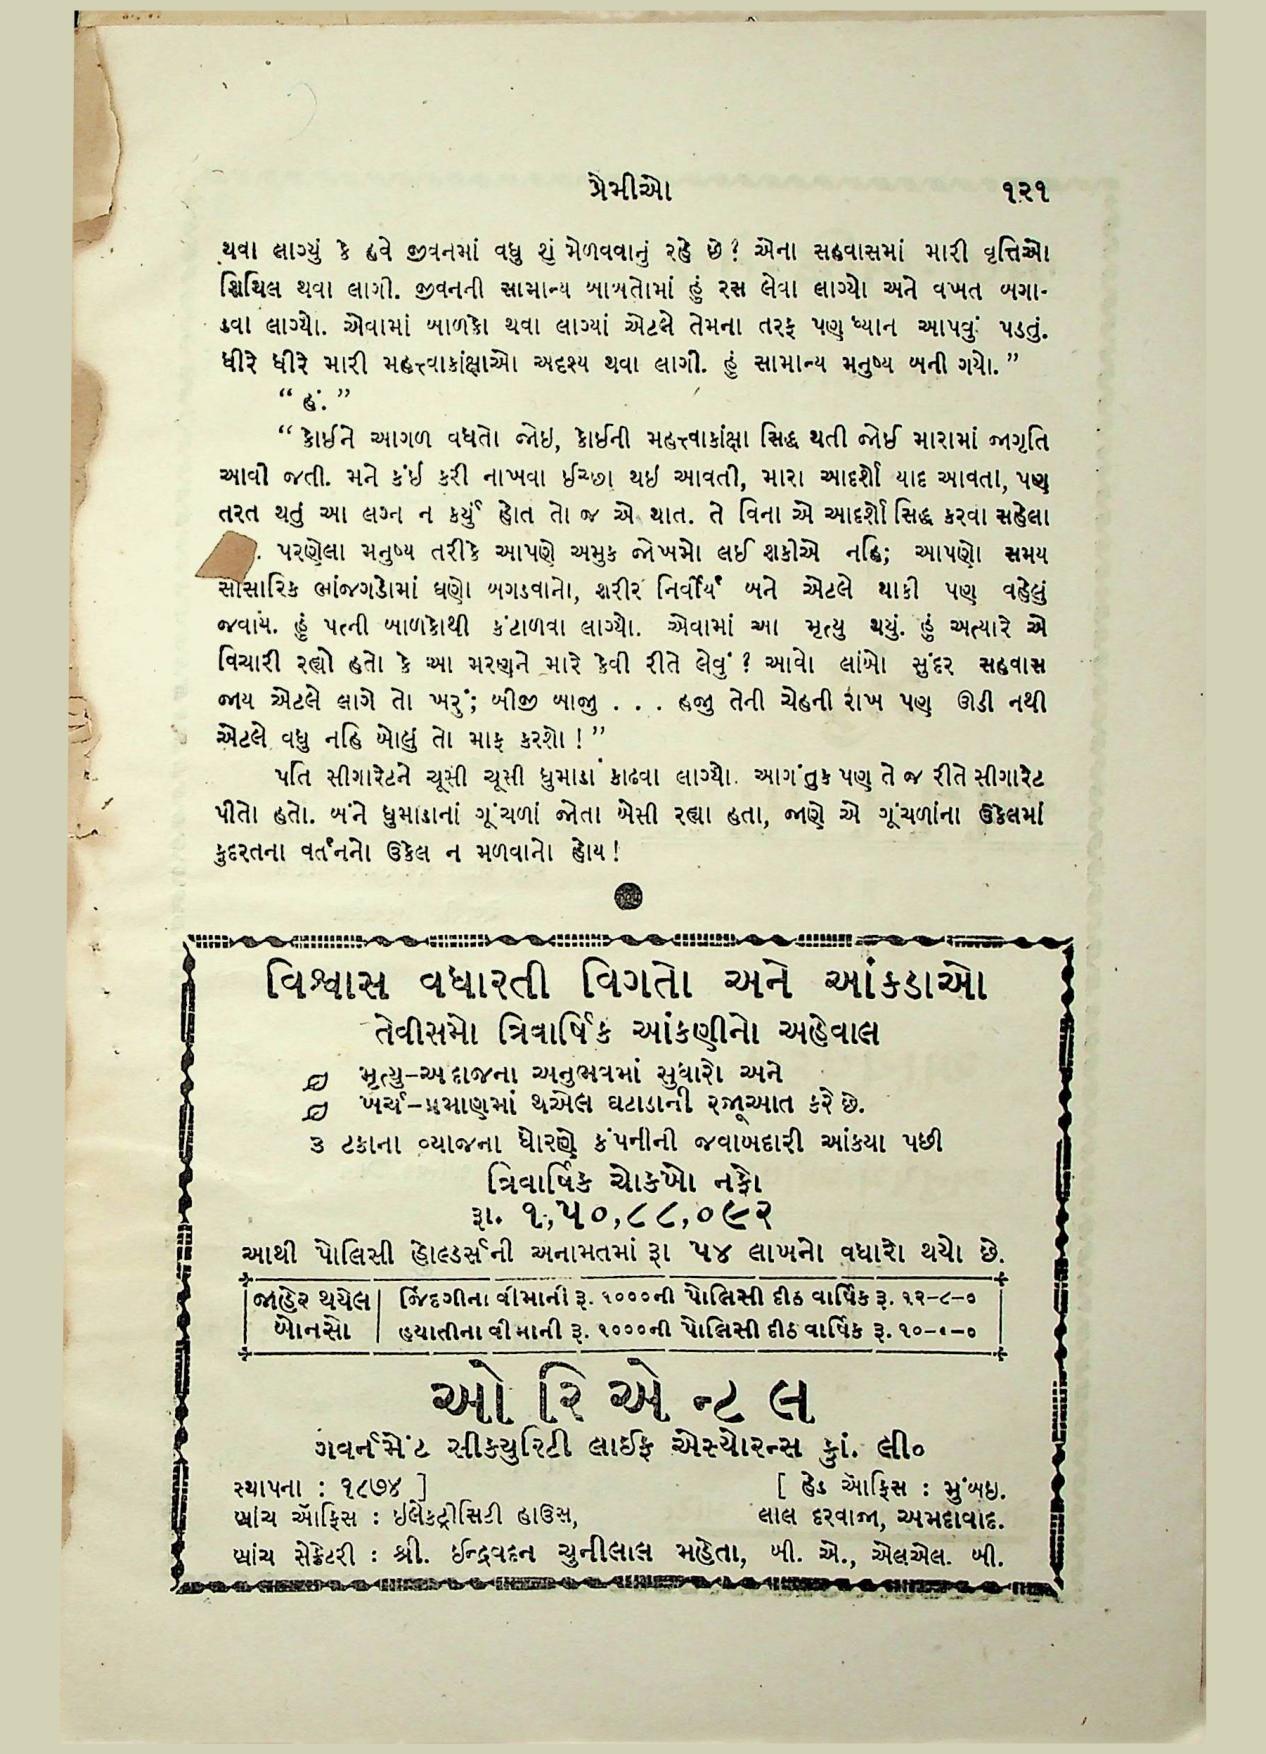 પ્રેમીઓ ૧૨૧
થવા લાગ્યું કે હવે જીવનમાં વધુ શું મેળવવાનું રહે છે? એના સહવાસમાં મારી વૃત્તિઓ
શિથિલ થવા લાગી. જીવનની સામાન્ય બાબતોમાં હું રસ લેવા લાગ્યો અને વખત બગા-
ડવા લાગ્યો. એવામાં બાળકો થવા લાગ્યાં એટલે તેમના તરફ પણ ધ્યાન આપવું પડતું.
ધીરે ધીરે મારી મહત્ત્વાકાંક્ષાઓ અદૃશ્ય થવા લાગી. હું સામાન્ય મનુષ્ય બની ગયો.”
“ હં. ”
“ કોઈને આગળ વધતો જોઇ, કોઈની મહત્ત્વાકાંક્ષા સિદ્ધ થતી જોઈ મારામાં જાગૃતિ
આવી જતી. મને કંઈ કરી નાખવા ઈચ્છા થઇ આવતી, મારા આદર્શો યાદ આવતા, પણ
તરત થતું આ લગ્ન ન કર્યું હોત તો જ એ થાત. તે વિના એ આદર્શો સિદ્ધ કરવા સહેલા
. પરણેલા મનુષ્ય તરીકે આપણે અમુક જોખમો લઈ શકીએ નહિ; આપણો સમય
સાંસારિક ભાંજગડોમાં ઘણો બગડવાનો, શરીર નિર્વીર્ય બને એટલે થાકી પણ વહેલું
જવાય. હું પત્ની બાળકોથી કંટાળવા લાગ્યો. એવામાં આ મૃત્યુ થયું. હું અત્યારે એ
વિચારી રહ્યો હતો કે આ મરણને મારે કેવી રીતે લેવું? આવો લાંબો સુંદર સહવાસ
જાય એટલે લાગે તો ખરું; બીજી બાજુ . . . હજુ તેની ચેહની રાખ પણ ઊડી નથી
એટલે વધુ નહિ બોલું તો માફ કરશો!”
પતિ સીગારેટને ચૂસી ચૂસી ધુમાડા કાઢવા લાગ્યો. આગંતુક પણ તે જ રીતે સીગારેટ
પીતો હતો. બંને ધુમાડાનાં ગૂંચળાં જોતા બેસી રહ્યા હતા, જાણે એ ગૂંચળાંના ઉકેલમાં
કુદરતના વર્તનનો ઉકેલ ન મળવાનો હોય!
વિશ્વાસ વધારતી વિગતો અને આંકડાઓ
તેવીસમો ત્રિવાર્ષિક આંકણીનો અહેવાલ
મૃત્યુ-અંદાજના અનુભવમાં સુધારો અને
ખર્ચ-પ્રમાણમાં થએલ ઘટાડાની રજૂઆત કરે છે.
૩ ટકાના વ્યાજના ધોરણે કંપનીની જવાબદારી આંકયા પછી
ત્રિવાર્ષિક ચોકખો નફો
રૂા. ૧,૫૦,૮૮,૦૯૨
આથી પોલિસી હોલ્ડર્સની અનામતમાં રૂા ૫૪ લાખનો વધારો થયો છે.
જાહેર થયેલ જિંદગીના વીમાની રૂ. ૧૦૦૦ની પોલિસી દીઠ વાર્ષિક રૂ. ૧૨-૮-૦
બોનસો હયાતીના વીમાની રૂ. ૧૦૦૦ની પોલિસી દીઠ વાર્ષિક રૂ.
ઓ રિ એ ન્ટ લ
ગવર્નમેંટ સીકયુરિટી લાઈફ એસ્યોરન્સ કું. લી૦
સ્થાપના : ૧૮૭૪ ] [ હેડ ઑફિસ : મુંબઇ.
બ્રાંચ ઑફિસ : ઇલેકટ્રીસિટી હાઉસ, લાલ દરવાજા, અમદાવાદ.
બ્રાંચ સેક્રેટરી : શ્રી. ઈન્દ્રવદન ચુનીલાલ મહેતા, બી. એ., એલએલ. બી.